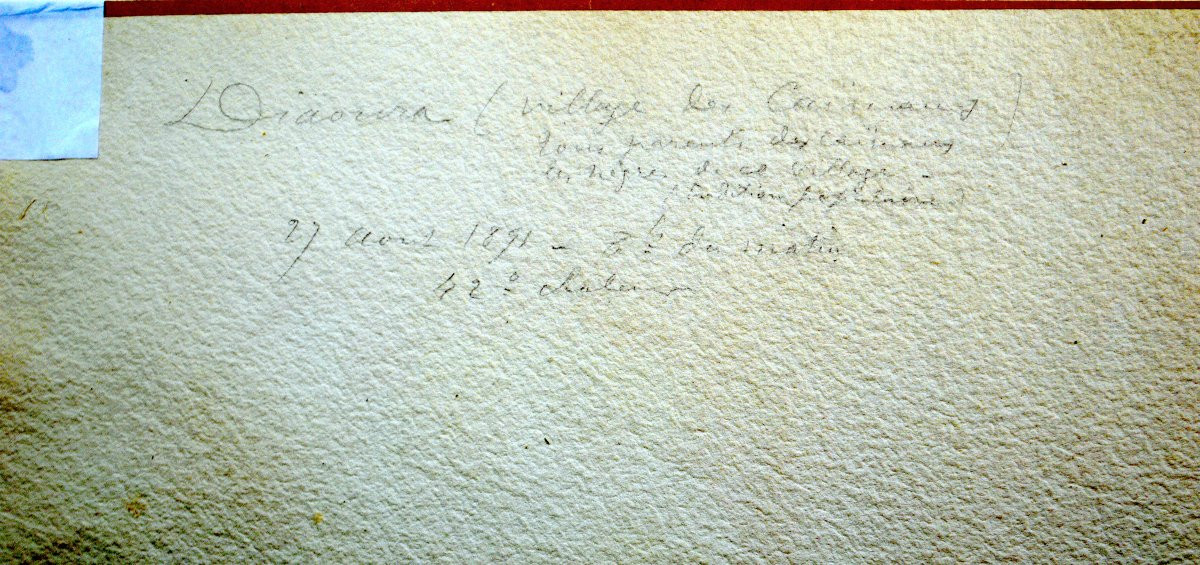 Diaoura (village des Caïmans)
tous parents des caïmans
les nègres de ce village -
(tradition populaire)
27 aout 1891 - 3h du matin
42° chaleur